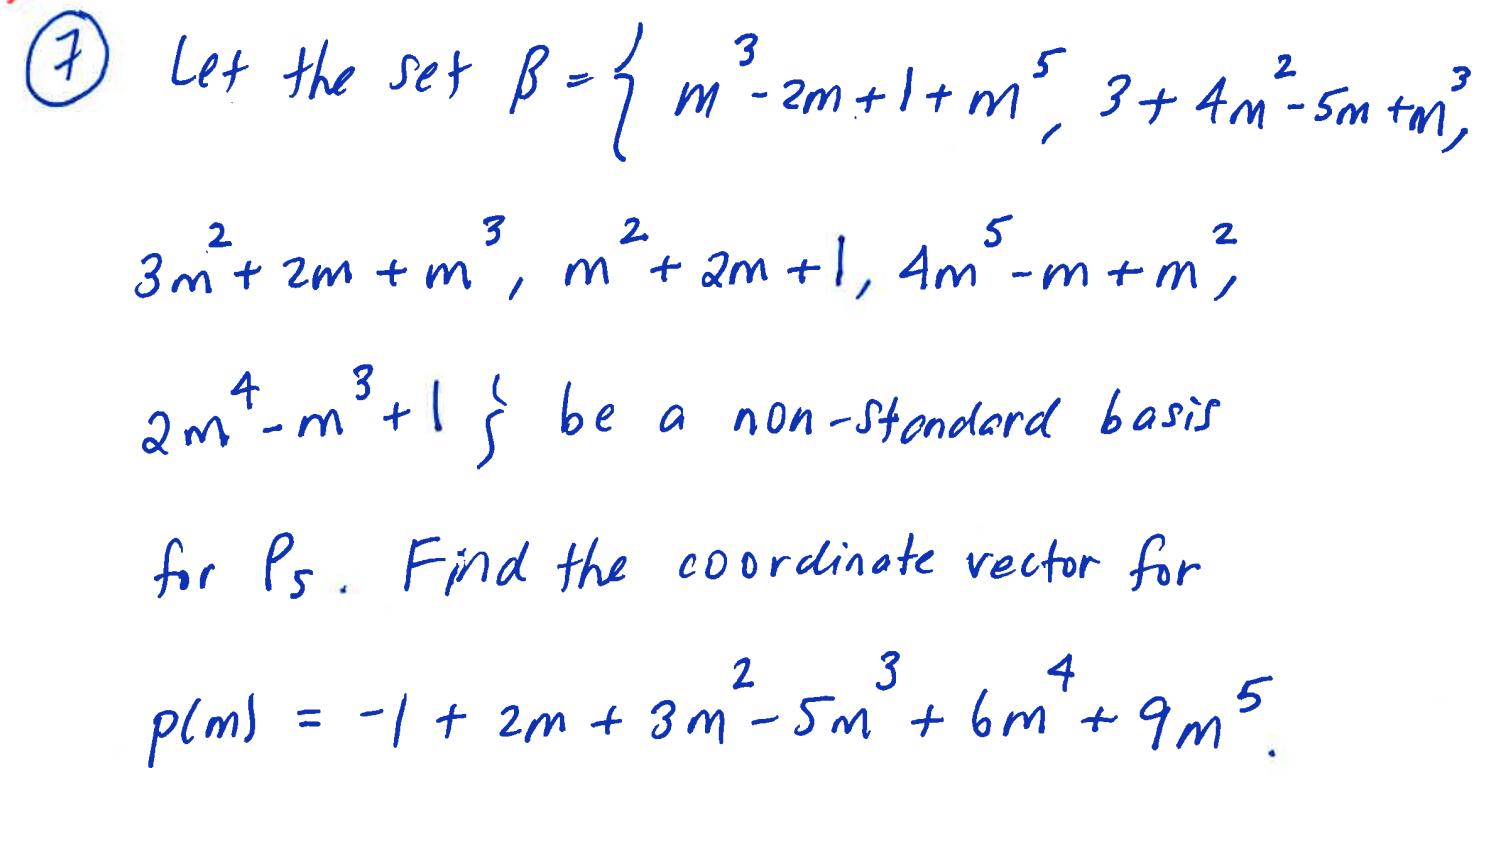 ⑦ Let the set β = { m³ - 2m + 1 + m⁵, 3 + 4m² - 5m + m³,
3m² + 2m + m³, m² + 2m + 1, 4m⁵ - m + m²,
2m⁴ - m³ + 1 } be a non-standard basis
for P₅. Find the coordinate vector for
p(m) = -1 + 2m + 3m² - 5m³ + 6m⁴ + 9m⁵.